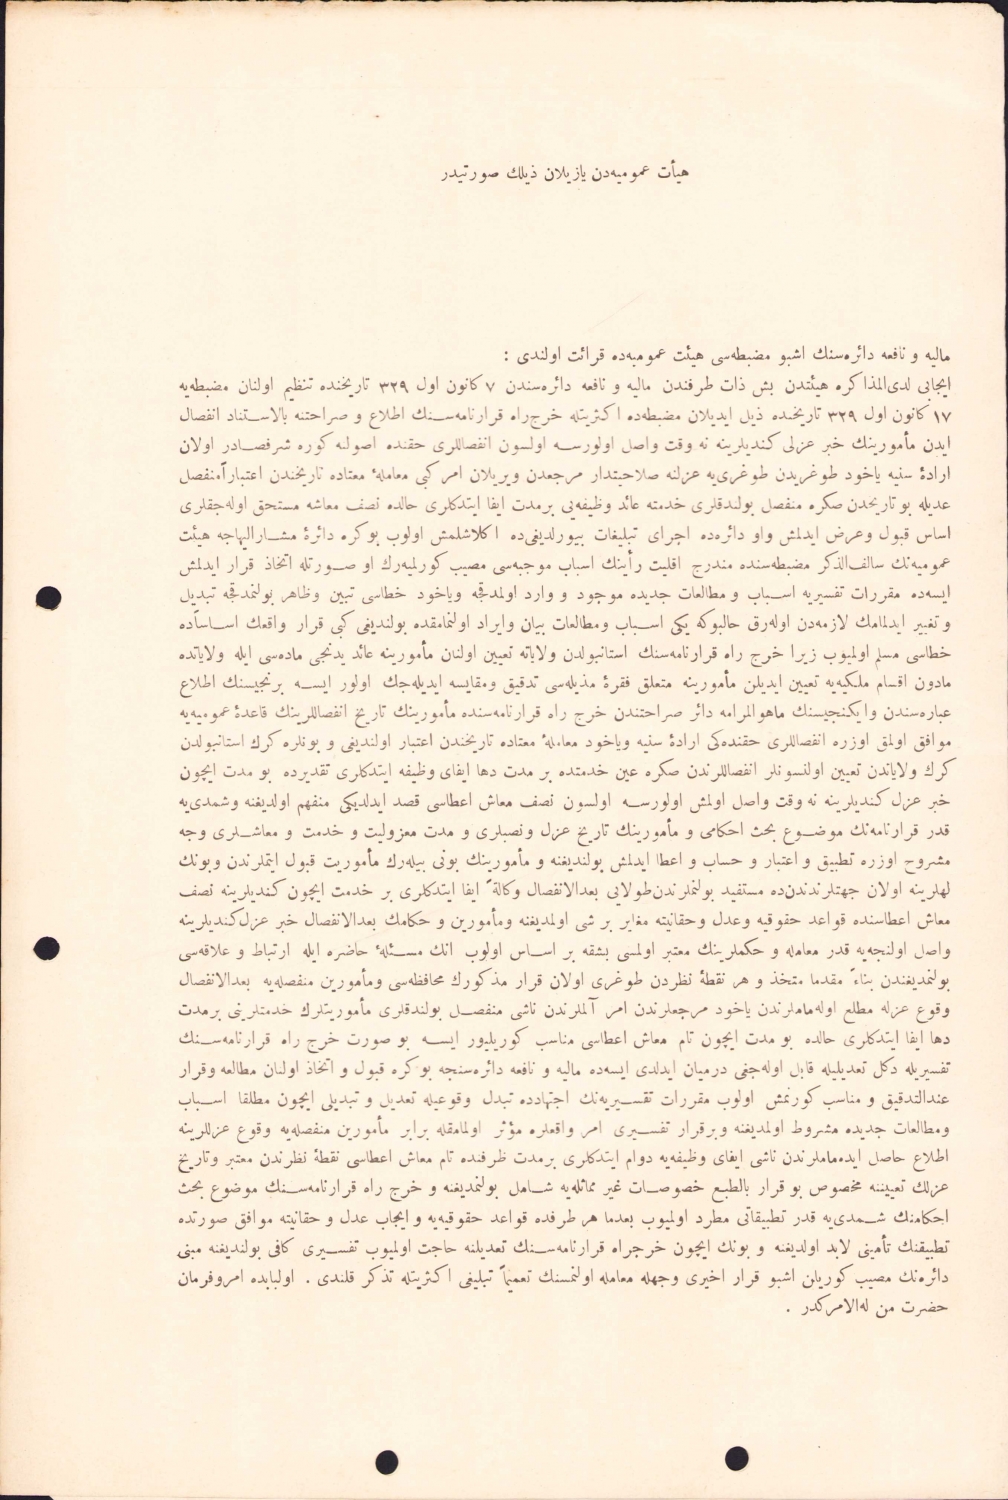 هیأت عمومیه‌دن یازیلان ذیلك صورتیدر
مالیه و نافعه دائره‌سنك اشبو مضبطه‌سی هیئت عمومیه‌ده قرائت اولندی :
ایجابی لدی‌المذاکره هیئتدن بش ذات طرفندن مالیه و نافعه دائره‌سندن ٧ کانون اول ٣٢٩ تاریخنده تنظیم اولنان مضبطه‌یه
١٧ کانون اول ٣٢٩ تاریخنده ذیل ایدیلان مضبطه‌ده اکثریتله خرج‌راه قرارنامه‌سـنك اطلاع و صراحتنه بالاستناد انفصال
ایدن مأمورینك خبر عزلی کندیلرینه نه وقت واصل اولورسه اولسون انفصاللری حقنده اصولنه کوره شرفصادر اولان
ارادهٔ سنیه یاخود طوغریدن طوغری‌یه عزلنه صلاحیتدار مرجعدن ویریلان امر کبی معاملهٔ معتاده تاریخندن اعتباراً منفصل
عدیله بو تاریخدن صکره منفصل بولندقلری خدمته عائد وظیفه‌یی برمدت ایفا ایتدکلری حالده نصف معاشه مستحق اوله‌جقلری
اساس قبول وعرض ایدلمش واو دائره‌ده اجرای تبلیغات بیورلدیغی‌ده اکلاشلمش اولوب بوکره دائرهٔ مشارالیهاجه هیئت
عمومیه‌نك سالف‌الذکر مضبطه‌سنده مندرج اقلیت رأینك اسباب موجبه‌سی مصیب کورلمیه‌رك او صورتله اتخاذ قرار ایدلمش
ایسه‌ده مقررات تفسیریه اسباب و مطالعات جدیده موجود و وارد اولمدقجه ویاخود خطاسی تبین وظاهر بولنمدقجه تبدیل
و تغییر ایدلمامك لازمه‌دن اوله‌رق حالبوکه یکی اسباب ومطالعات بیان وایراد اولنمامقده بولندیغی کبی قرار واقعك اساساً‌ده
خطاسی مسلم اولمیوب زیرا خرج راه قرارنامه‌سنك استانبولدن ولایاته تعیین اولنان مأمورینه عائد یدنجی ماده‌سی ایله ولایاتده
مادون اقسام ملکیه‌یه تعیین ایدیلن مأمورینه متعلق فقرهٔ مذیله‌سی تدقیق ومقایسه ایدیله‌جك اولور ایسه برنجیسنك اطلاع
عباره‌سندن وایکنجیسنك ماهوالمرامه دائر صراحتندن خرج راه قرارنامه‌سنده مأمورینك تاریخ انفصاللرینك قاعدهٔ عمومیه‌یه
موافق اولمق اوزره انفصاللری حقنده‌کی ارادهٔ سنیه ویاخود معاملهٔ معتاده تاریخندن اعتبار اولندیغی و بونلره کرك استانبولدن
کرك ولایاتدن تعیین اولنسونلر انفصاللرندن صکره عین خدمتده بر مدت دها ایفای وظیفه ایتدکلری تقدیرده بو مدت ایچون
خبر عزل کندیلرینه نه وقت واصل اولمش اولورسه اولسون نصف معاش اعطاسی قصد ایدلدیکی منفهم اولدیغنه وشمدی‌یه
قدر قرارنامه‌نك موضوع بحث احکامی و مأمورینك تاریخ عزل ونصبلری و مدت معزولیت و خدمت و معاشلری وجه
مشروح اوزره تطبیق و اعتبار و حساب و اعطا ایدلمش بولندیغنه و مأمورینك بونی بیله‌رك مأموریت قبول ایتملرندن وبونك
لهلرینه اولان جهتلرندن‌ده مستفید بولنملرندن‌طولایی بعدالانفصال وکالةً ایفا ایتدکلری بر خدمت ایچون کندیلرینه نصف
معاش اعطاسنده قواعد حقوقیه وعدل وحقانیته مغایر بر شی اولمدیغنه ومأمورین و حکامك بعدالانفصال خبر عزل‌کندیلرینه
واصل اولنجه‌یه قدر معامله و حکملرینك معتبر اولمسی بشقه بر اساس اولوب انك مسئلهٔ حاضره ایله ارتباط و علاقه‌سی
بولنمدیغندن بناءً مقدما متخذ و هر نقطهٔ نظردن طوغری اولان قرار مذکورك محافظه‌سی ومأمورین منفصله‌یه بعدالانفصال
وقوع عزله مطلع اوله‌ماملرندن یاخود مرجعلرندن امر آلملرندن ناشی منفصل بولندقلری مأموریتلرك خدمتلرینی برمدت
دها ایفا ایتدکلری حالده بو مدت ایچون تام معاش اعطاسی مناسب کوریلیور ایسه بو صورت خرج راه قرارنامه‌سـنك
تفسیریله دکل تعدیلیله قابل اوله‌جغی درمیان ایدلدی ایسه‌ده مالیه و نافعه دائره‌سنجه بوکره قبول و اتخاذ اولنان مطالعه وقرار
عندالتدقیق و مناسب کورنمش اولوب مقررات تفسیریه‌نك اجتهادده تبدل وقوعیله تعدیل و تبدیلی ایچون مطلقا اسباب
ومطالعات جدیده مشروط اولمدیغنه وبرقرار تفسیری امر واقعلره مؤثر اولمامقله برابر مأمورین منفصله‌یه وقوع عزللرینه
اطلاع حاصل ایده‌ماملرندن ناشی ایفای وظیفه‌یه دوام ایتدکلری برمدت ظرفنده تام معاش اعطاسی نقطهٔ نظرندن معتبر وتاریخ
عزلك تعییننه مخصوص بو قرار بالطبع خصوصات غیر مماثله‌یه شامل بولنمدیغنه و خرج راه قرارنامه‌سـنك موضوع بحث
احکامنك شمدی‌یه قدر تطبیقاتی مطرد اولمیوب بعدما هر طرفده قواعد حقوقیه‌یه و ایجاب عدل و حقانیته موافق صورتده
تطبیقنك تأمینی لابد اولدیغنه و بونك ایچون خرجراه قرارنامه‌سـنك تعدیلنه حاجت اولمیوب تفسیری کافی بولندیغنه مبنی
دائره‌نك مصیب کوریلن اشبو قرار اخیری وجهله معامله اولنمسنك تعمیماً تبلیغی اکثریتله تذکر قلندی . اولبابده امروفرمان
حضرت من له‌الامرکدر .